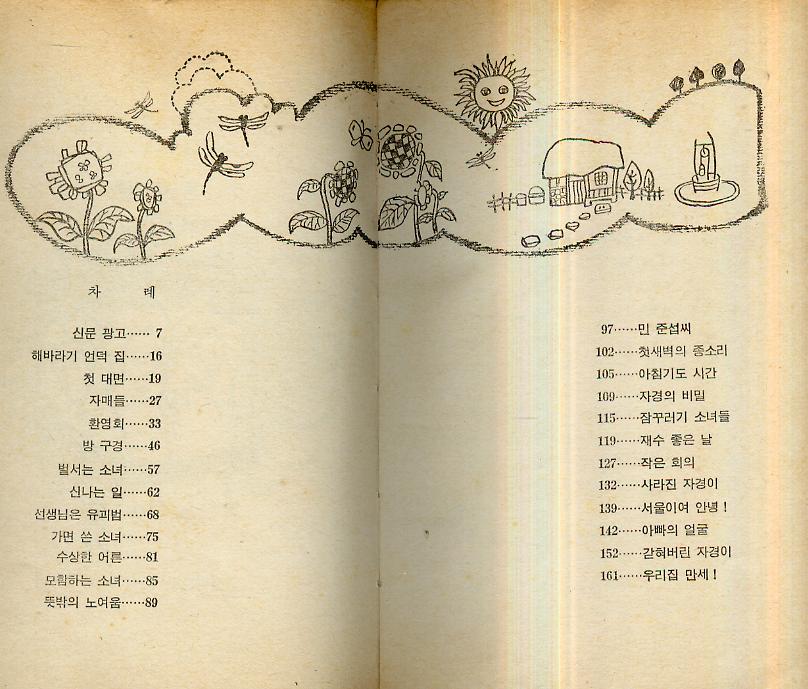 차 례
신문 광고…… 7
해바라기 언덕 집……16
첫 대면……19
자매들……27
환영회……33
방 구경……46
벌서는 소녀……57
신나는 일……62
선생님은 유괴범……68
가면 쓴 소녀……75
수상한 어른……81
모함하는 소녀……85
뜻밖의 노여움……89
97……민 준섭씨
102……첫새벽의 종소리
105……아침기도 시간
109……자경의 비밀
115……잠꾸러기 소녀들
119……재수 좋은 날
127……작은 회의
132……사라진 자경이
139……서울이여 안녕!
142……아빠의 얼굴
152……갇혀버린 자경이
161……우리집 만세!